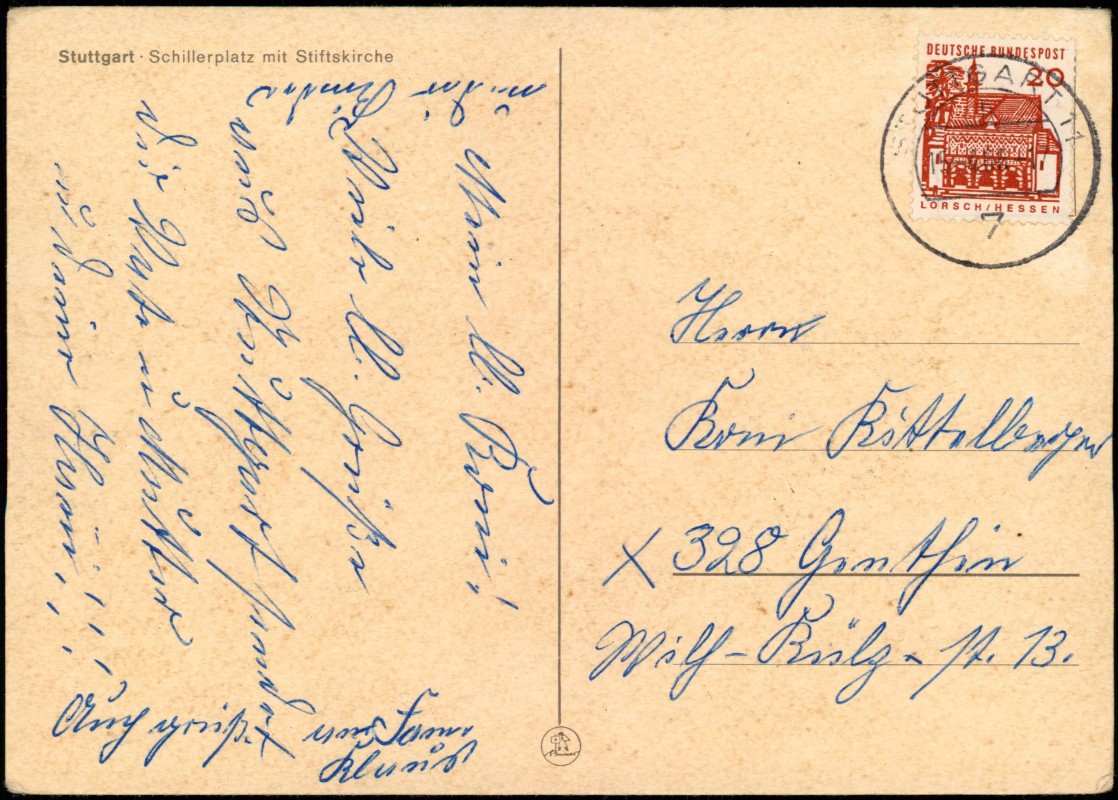 Stuttgart · Schillerplatz mit Stiftskirche
Mein ll. Roni!
Viele ll. Grüße
aus Stuttgart sendet
dir Vate u. Mutter
u. deine
Auch grüßt
Klaus
DEUTSCHE BUNDESPOST
20
LORSCH/HESSEN
STUTTGART 11
7
Herrn
Roni Kittelberger
X 328 Genthin
Wilh-Külz-st. 13.